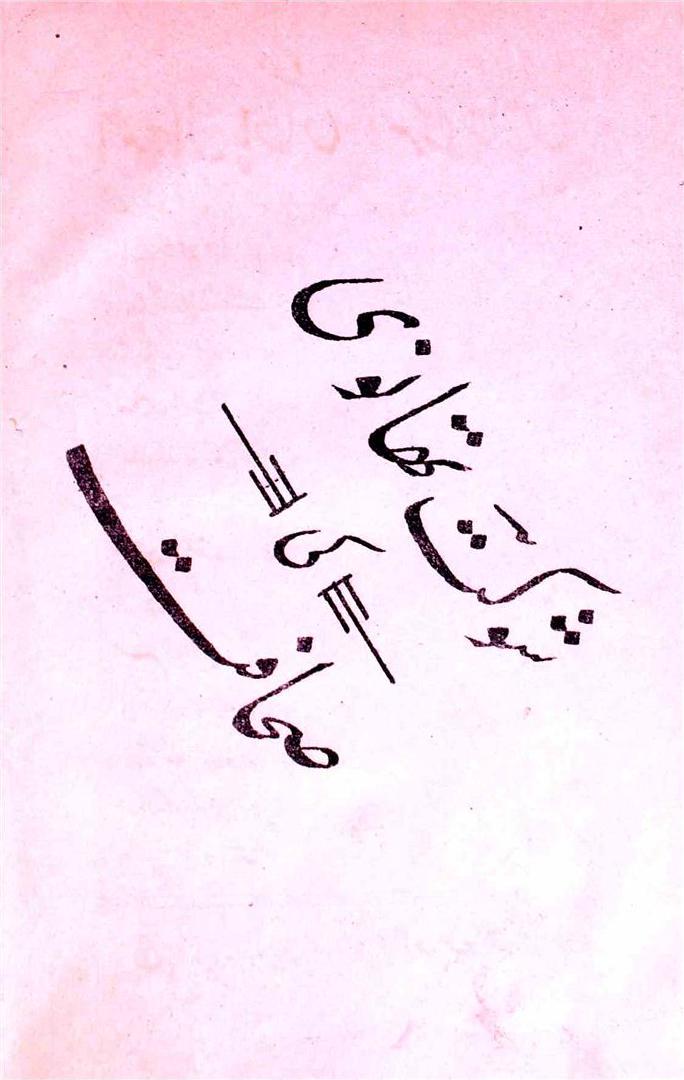 شوکت تھانوی
کی
صحافت